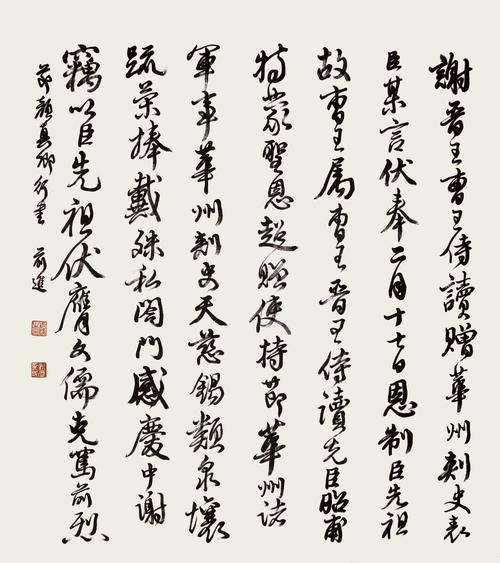 謝晉王曹王侍讀贈華州刺史表
臣某言伏奉二月十七日恩制臣先祖
故曹王属曹王晉王侍讀先臣昭甫
特蒙聖恩超贈使持節華州諸
軍事華州刺史天慈錫類泉壤
疏榮捧戴殊私闔門感慶中谢
竊以臣先祖伏膺文儒克篤前烈
節顏真卿行書 前進